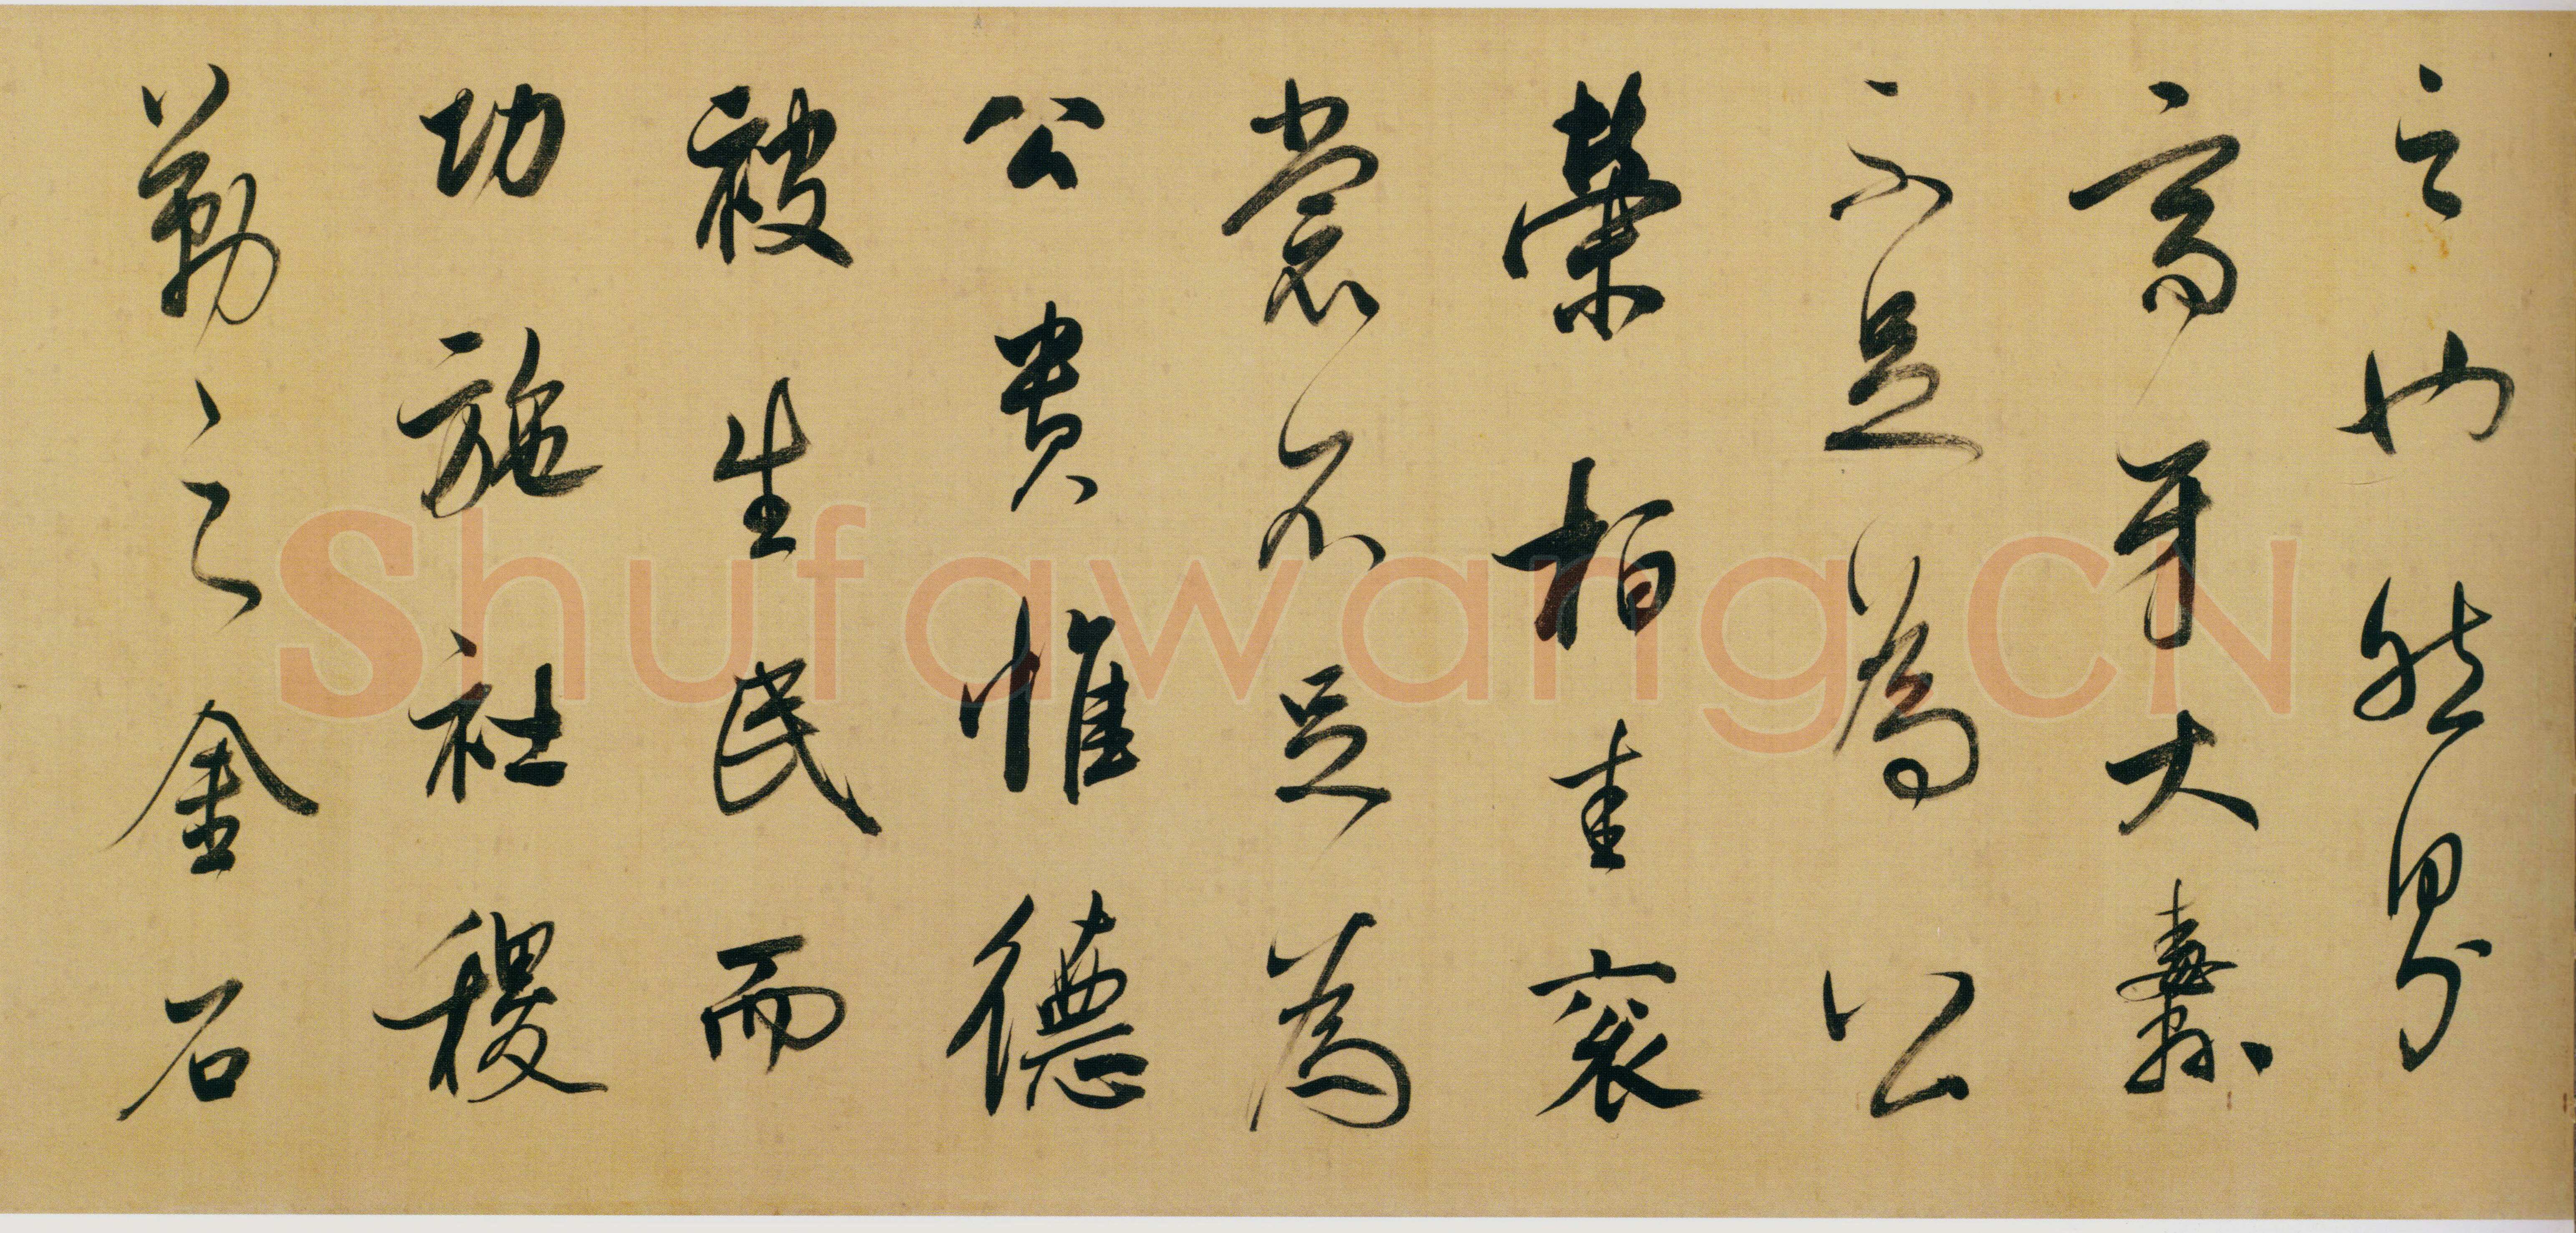 之也然則
高牙大纛
不足為公
榮桓圭袞
裳不足為
公貴惟德
被生民而
功施社稷
勒之金石
Shufawang.CN